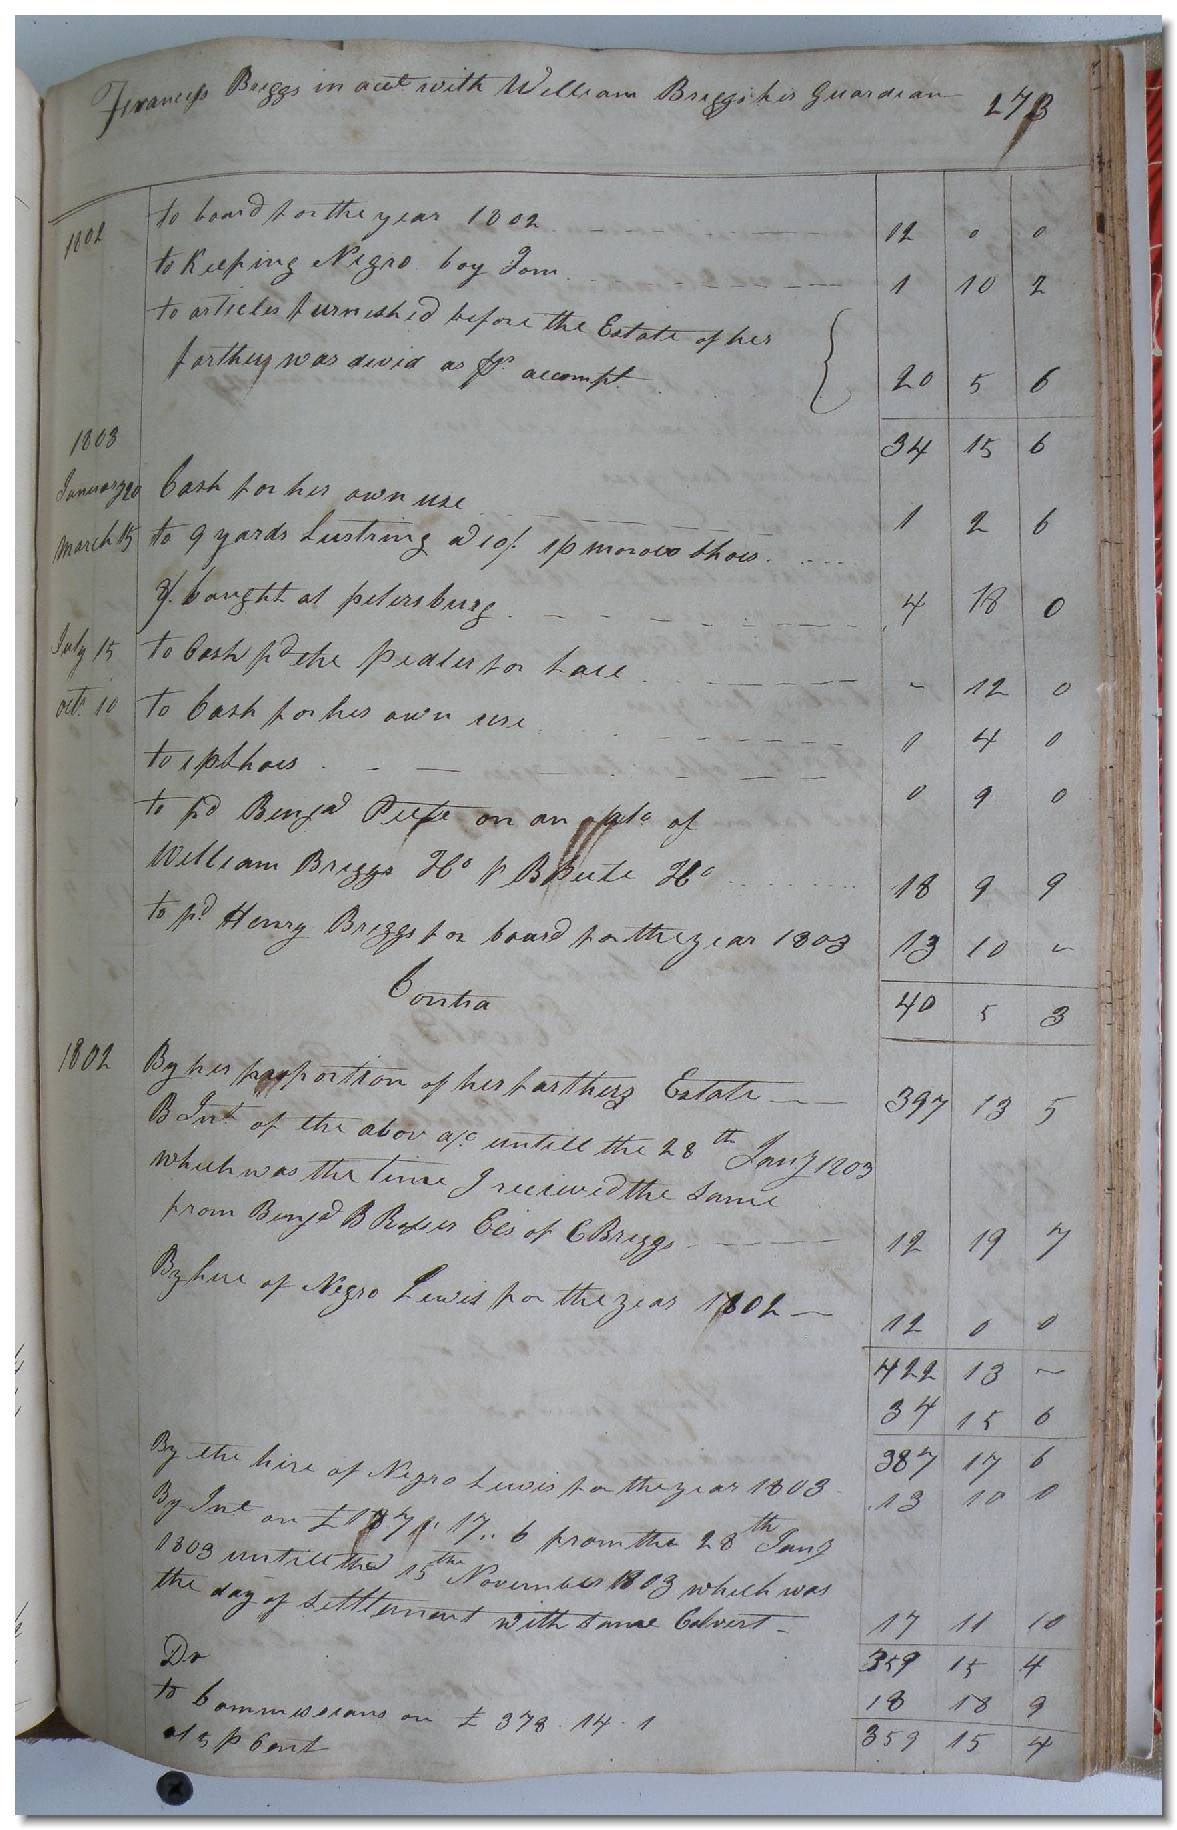 Francess Briggs in acct with William Briggs his Guardian 273
1802 to board for the year 1802 12 0 0
to Keeping Negro boy Tom 1 10 2
to articles furnish'd before the Estate of her
farther was devid as pr accompt 20 5 6
1803 34 15 6
January 20 Cash for her own use 1 2 6
March 15 to 9 yards Lustring @ 10/. 1 p moroco Shoes
9/. bought at petersburg 4 18 0
July 15 to Cash pd the pedler for Lace ~ 12 0
octr 10 to Cash for her own use 1 4 0
to 1 p Shoes 0 9 0
to pd Benja Peete on an of
William Briggs B Peete 18 9 9
to pd Henry Briggs for board for the year 1803 13 10 ~
Contra 40 5 3
1802 By her proportion of her farthers Estate 397 13 5
B Int of the abov a/c untill the 28th Jany 1803
which was the time I recieved the Same
from Benja B of C Briggs 12 19 7
By hire of Negro Lewis for the year 1802 12 0 0
422 13 ~
34 15 6
By the hire of Negro Lewis for the year 1803 387 17 6
13 10 0
By Int on £ 17,, 6 from the 28th Jany
1803 untill the 15th November 1803 which was
the day of Settlement with Calvert 17 11 10
Dr 359 15 4
to Commissions on £ 378.14.1 18 18 9
at 5 p Cent 359 15 4